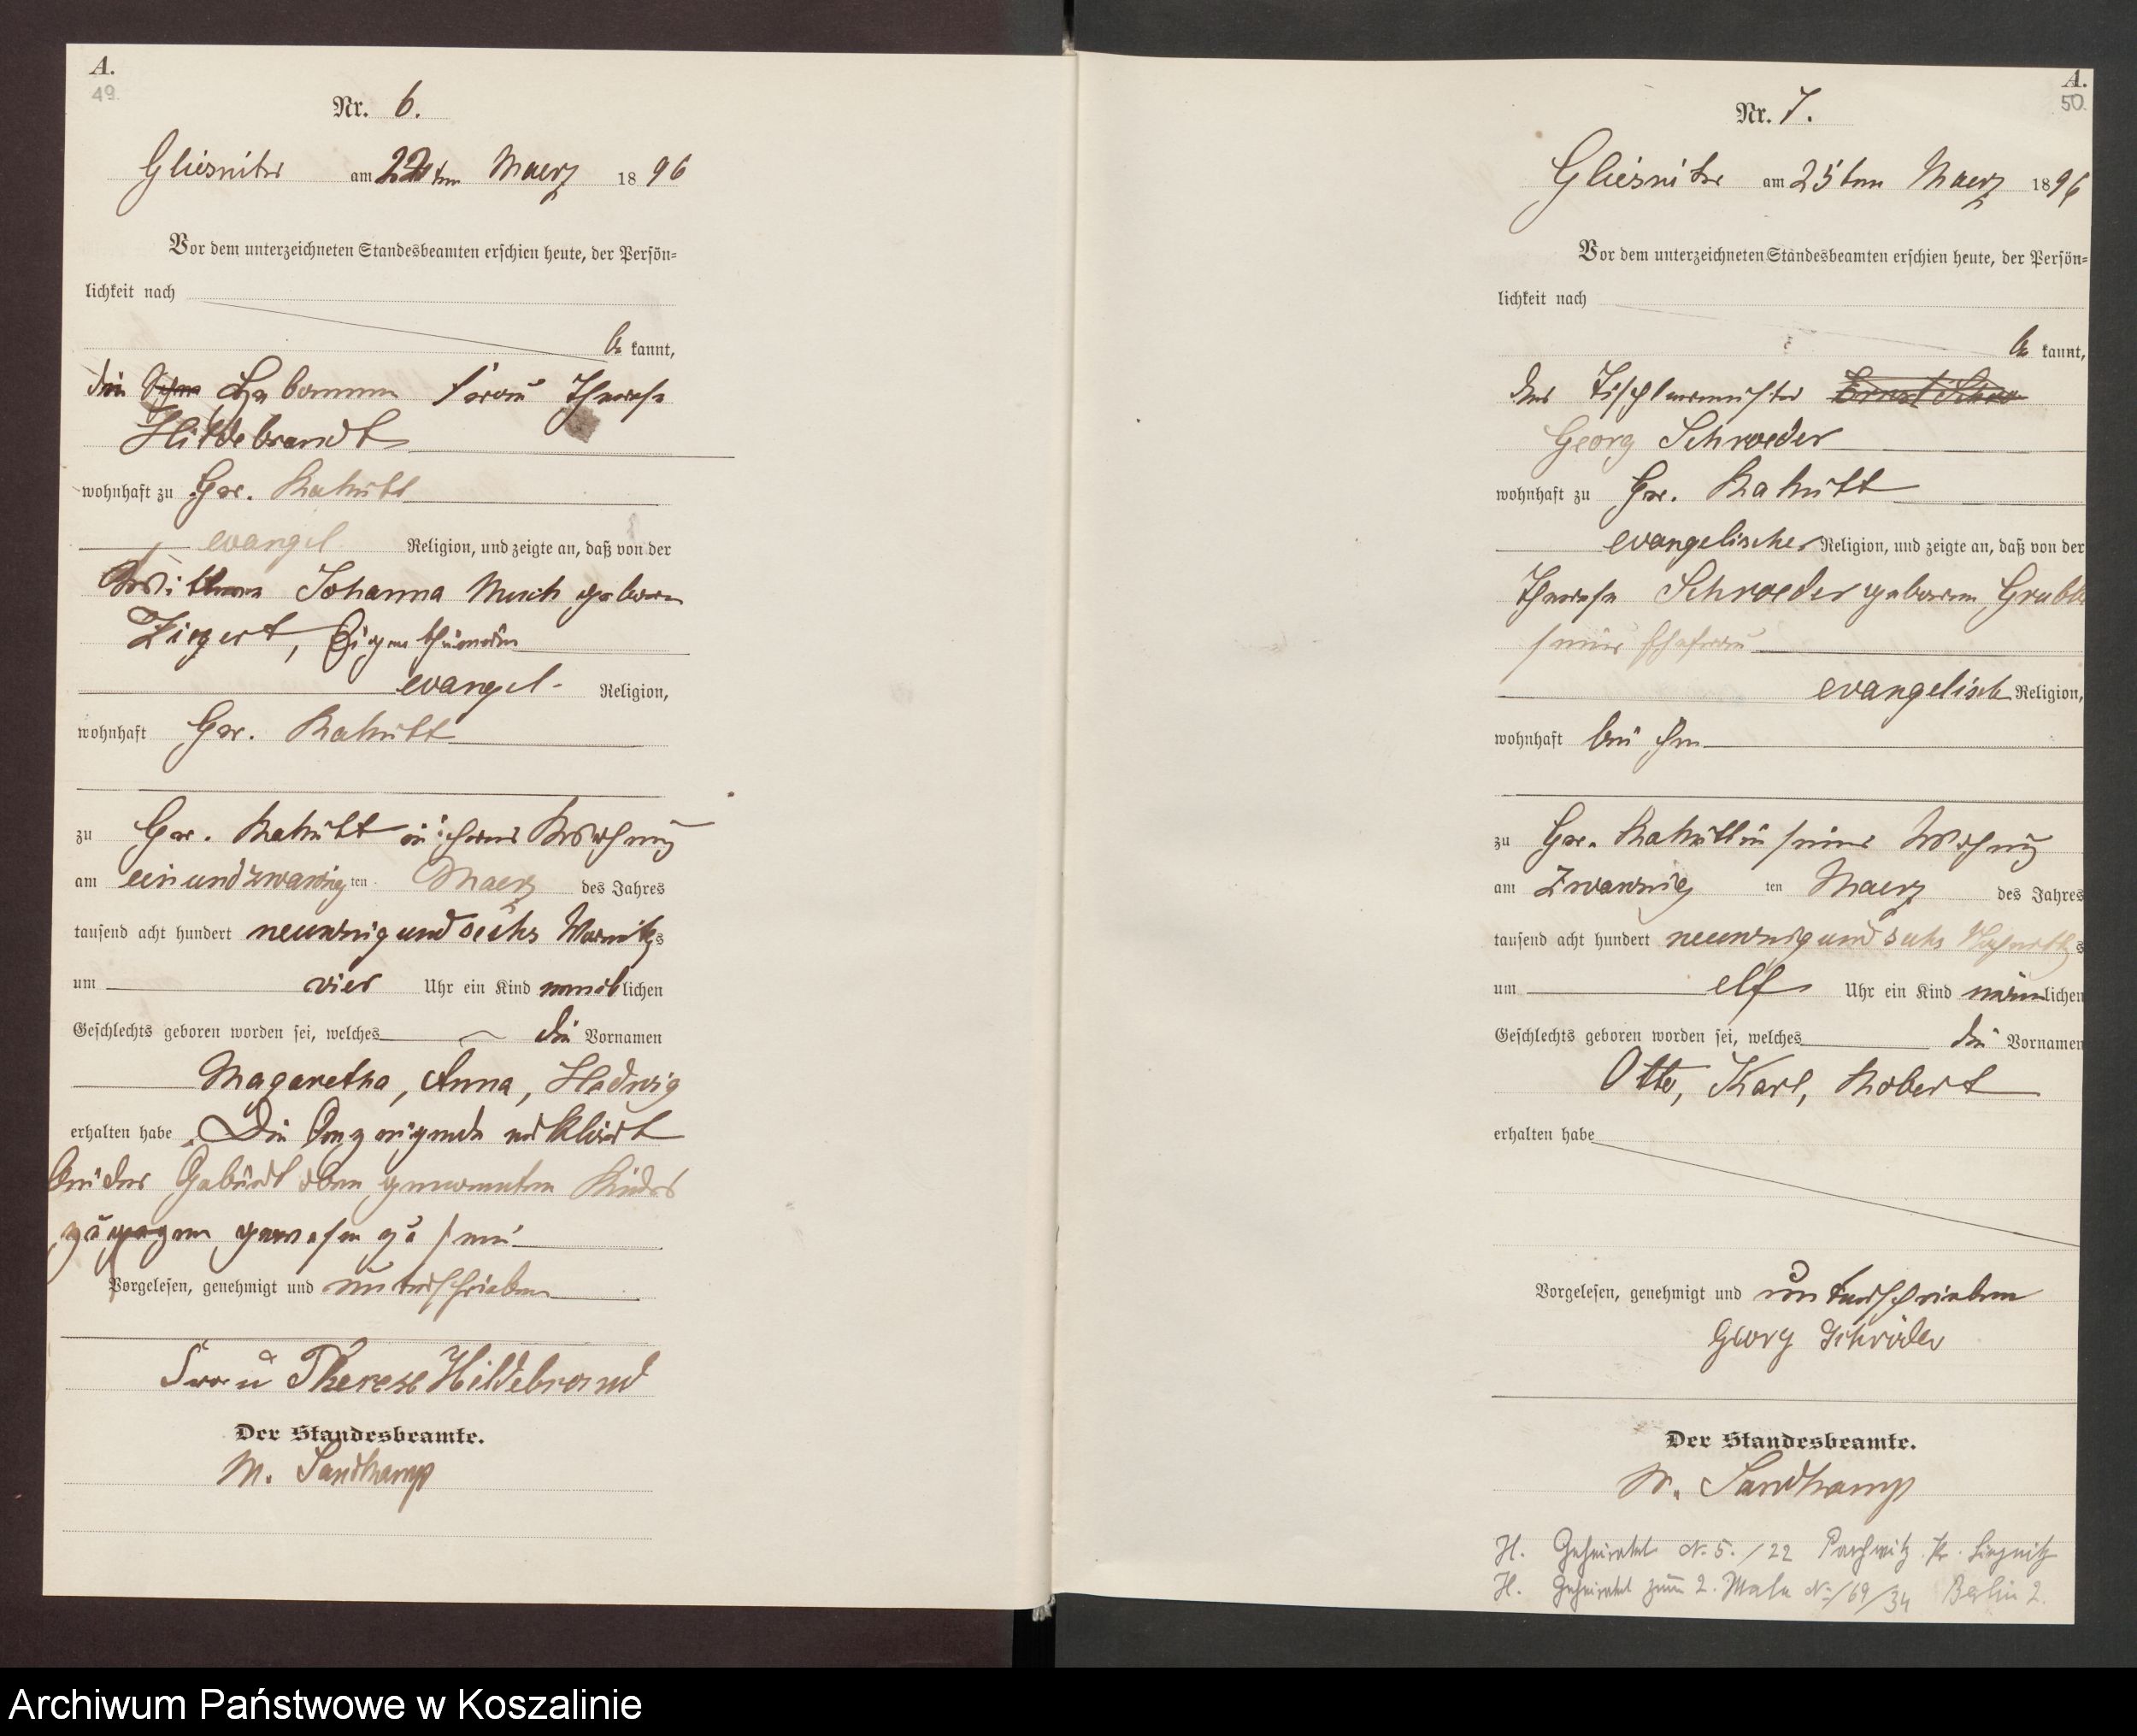 A.
49.
Nr. 6.
Gliesnitz am 22ten Maerz 1896
Vor dem unterzeichneten Standesbeamten erschien heute, der Persön=
lichkeit nach
be kannt,
die Hebamme Frau Therese
Hildebrandt
wohnhaft zu Gr. Rakitt
evangel Religion, und zeigte an, daß von der
Wittwe Johanna Much geborne
Ziegert, Eigenthümerin
evangel. Religion,
wohnhaft Gr. Rakitt
zu Gr. Rakitt in ihrer Wohnung
am einundzwanzigten Maerz des Jahres
tausend acht hundert neunzig und sechs Vormittags
um vier Uhr ein Kind weiblichen
Geschlechts geboren worden sei, welches die Vornamen
Magaretha, Anna, Hedwig
erhalten habe. Die Anzeigende erklärt
bei der Geburt oben genannten Kindes
zugegen gewesen zu sein
Vorgelesen, genehmigt und unterschrieben
Frau Therese Hildebrand
Der Standesbeamte.
M. Sandkamp
A.
50.
Nr. 7.
Gliesnitz am 25ten Maerz 1896
Vor dem unterzeichneten Standesbeamten erschien heute, der Persön=
lichkeit nach
be kannt,
der Tischlermeister
Georg Schroeder
wohnhaft zu Gr. Rakitt
evangelischer Religion, und zeigte an, daß von der
Therese Schroeder geborene Grubbe
seiner Ehefrau
evangelisch Religion,
wohnhaft bei ihm
zu Gr. Rakitt in seiner Wohnung
am Zwanzigten Maerz des Jahres
tausend acht hundert neunzig und sechs Vormittags
um elf Uhr ein Kind männlichen
Geschlechts geboren worden sei, welches die Vornamen
Otto, Karl, Robert
erhalten habe
Vorgelesen, genehmigt und unterschrieben
Georg Schröder
Der Standesbeamte.
M. Sandkamp
H. Geheiratet N. 5./22 Parchwitz Kr. Liegnitz
H. Geheiratet zum 2. Male No /69/34 Berlin 2.
Archiwum Państwowe w Koszalinie